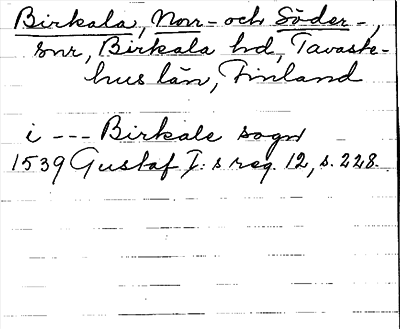 Birkala, Norr- och Söder-,
snr, Birkala hd, Tavaste-
hus län, Finland
i --- Birkale sogn
1539 Gustaf I:s reg. 12, s. 228.